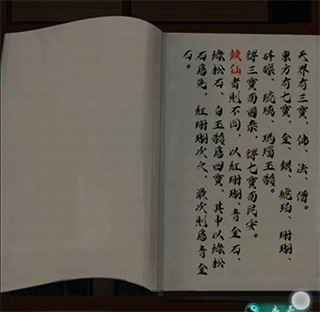 天界有三寶,佛、法、僧。
東方有七寶,金、銀、琥珀、珊瑚
硨磲、琉璃、瑪瑙玉髓。
得三寶而國泰,得七寶而民安。
仙者則不同,以紅珊瑚、青金石、
綠松石、白玉髓為四寶,其中以綠松
石為先,紅珊瑚次之,最次則為青金
石。